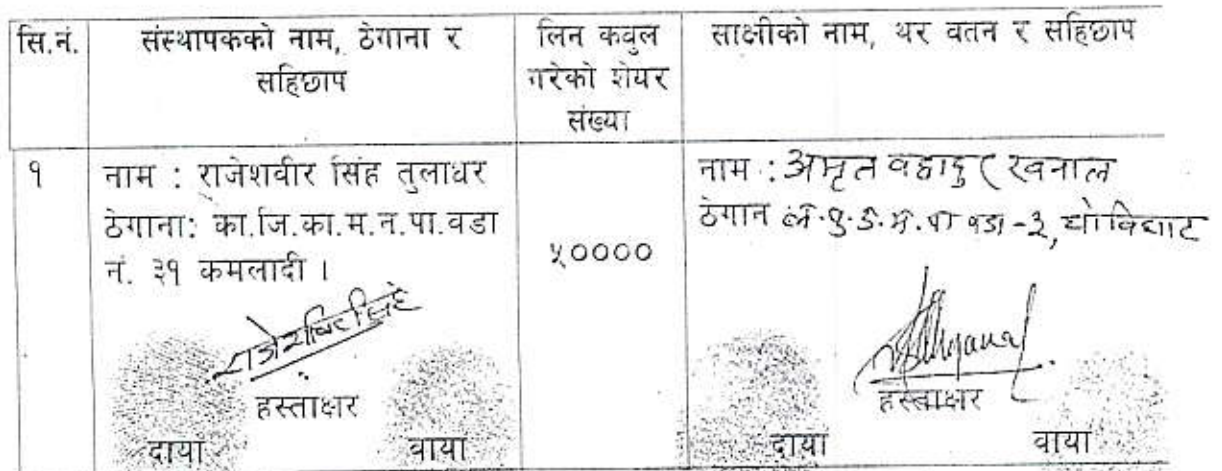 सि.नं.
संस्थापकको नाम, ठेगाना र
सहिछाप
लिन कवुल
गरेको शेयर
संख्या
साक्षीको नाम, थर वतन र सहिछाप
१
नाम : राजेशवीर सिंह तुलाधर
ठेगाना: का.जि.का.म.न.पा.वडा
नं. ३१ कमलादी ।
हस्ताक्षर
दाया वाया
५००००
नाम : अमृत बहादुर खनाल
ठेगान ल.पु.उ.म.पा वडा-३, धोविघाट
हस्ताक्षर
दाया वाया